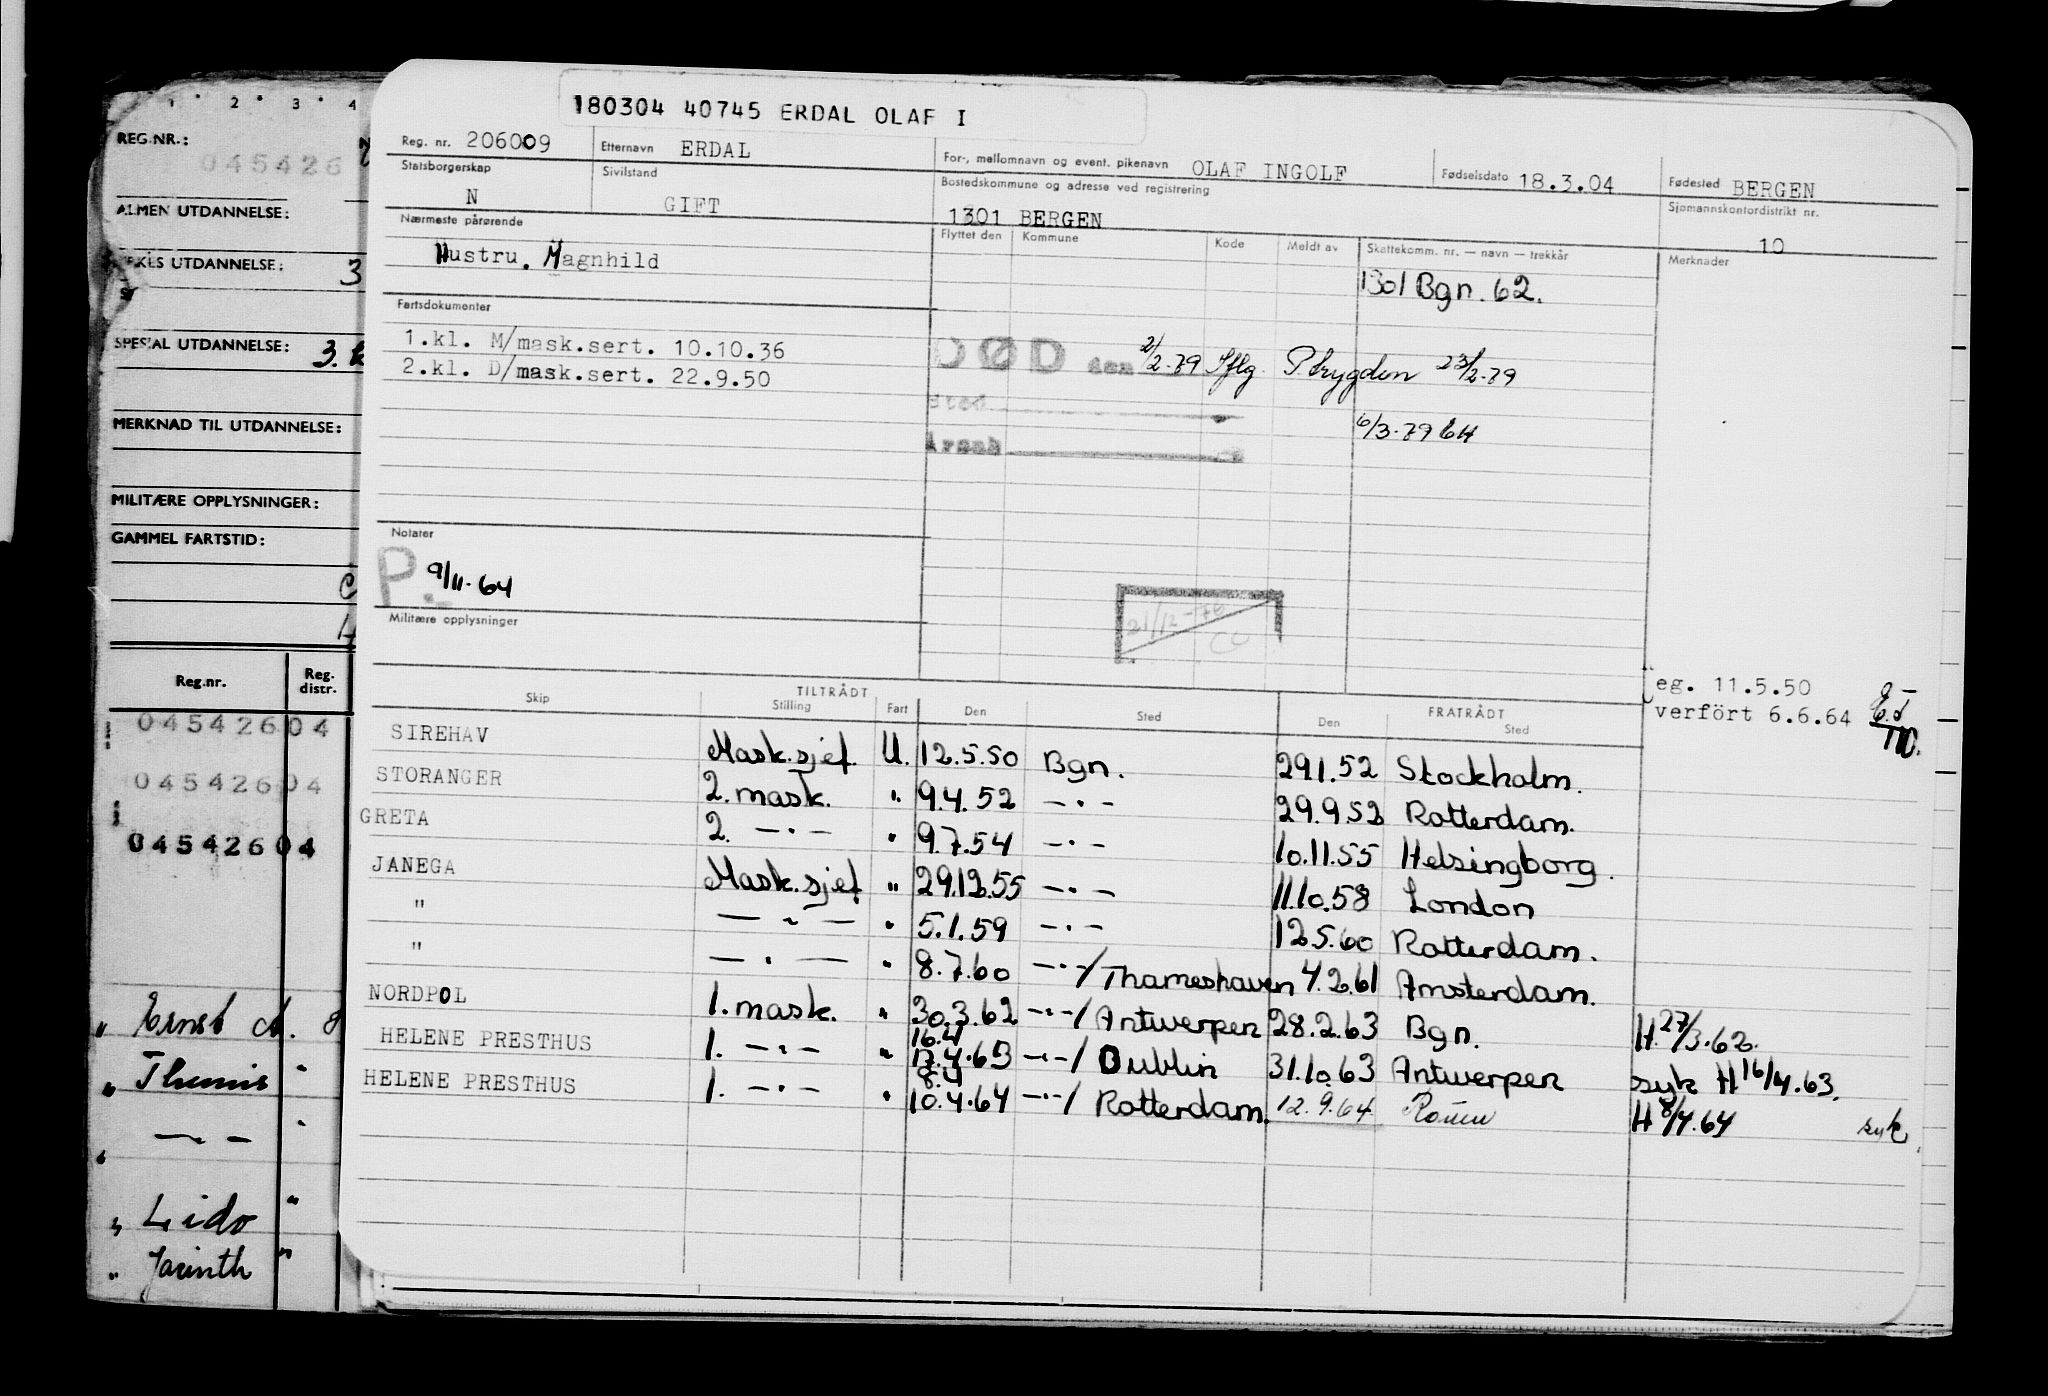 180304 40745 ERDAL OLAF I
Reg. nr. 206009 Etternavn ERDAL For-, mellomnavn og event. pikenavn OLAF INGOLF Fødselsdato 18.3.04 Fødested BERGEN
Statsborgerskap N Sivilstand GIFT Bostedskommune og adresse ved registrering 1301 BERGEN Sjømannskontordistrikt nr. 10
Nærmeste pårørende Flyttet den Kommune Kode Meldt av Skattekomm. nr. — navn — trekkår Merknader
Hustru. Magnhild
1301 Bgn. 62.
Fartsdokumenter
1.kl. M/mask.sert. 10.10.36
2.kl. D/mask.sert. 22.9.50
DØD den 2/2-79 Sflg. P.trygden 23/2-79
Sted
Årsak
6/3-79 EH
Notater
P. 9/11-64
21/12-76
CC
Militære opplysninger
eg. 11.5.50
verfört 6.6.64
TILTRÅDT FRATRÅDT
Skip Stilling Fart Den Sted Den Sted
SIREHAV Mask.sjef. U. 12.5.50 Bgn. 29.1.52 Stockholm.
STORANGER 2. mask. " 9.4.52 —·— 29.9.52 Rotterdam.
GRETA 2. —·— " 9.7.54 —·— 10.11.55 Helsingborg.
JANEGA Mask.sjef " 29.12.55 —·— 11.10.58 London
" —·— " 5.1.59 —·— 12.5.60 Rotterdam.
" —·— " 8.7.60 —·—/Thameshaven 4.2.61 Amsterdam.
NORDPOL 1. mask. " 30.3.62 —·—/Antwerpen 28.2.63 Bgn. H.27/3.62.
16.4
HELENE PRESTHUS 1. —·— " 17.4.63 —·—/Dublin 31.10.63 Antwerpen syk H16/4.63.
8.4
HELENE PRESTHUS 1. —·— " 10.4.64 —·—/Rotterdam. 12.9.64 Rouen H 8/4.64 syk
1 2 3 4
REG.NR.:
045426
ALMEN UTDANNELSE:
UTDANNELSE: 3
SPESIAL UTDANNELSE: 3.
MERKNAD TIL UTDANNELSE:
MILITÆRE OPPLYSNINGER:
GAMMEL FARTSTID:
Reg.nr. Reg. distr.
045426 04
045426 04
045426 04
" Ernst A. 8
" Themis "
" —·— "
" Lido "
" Jacinth "